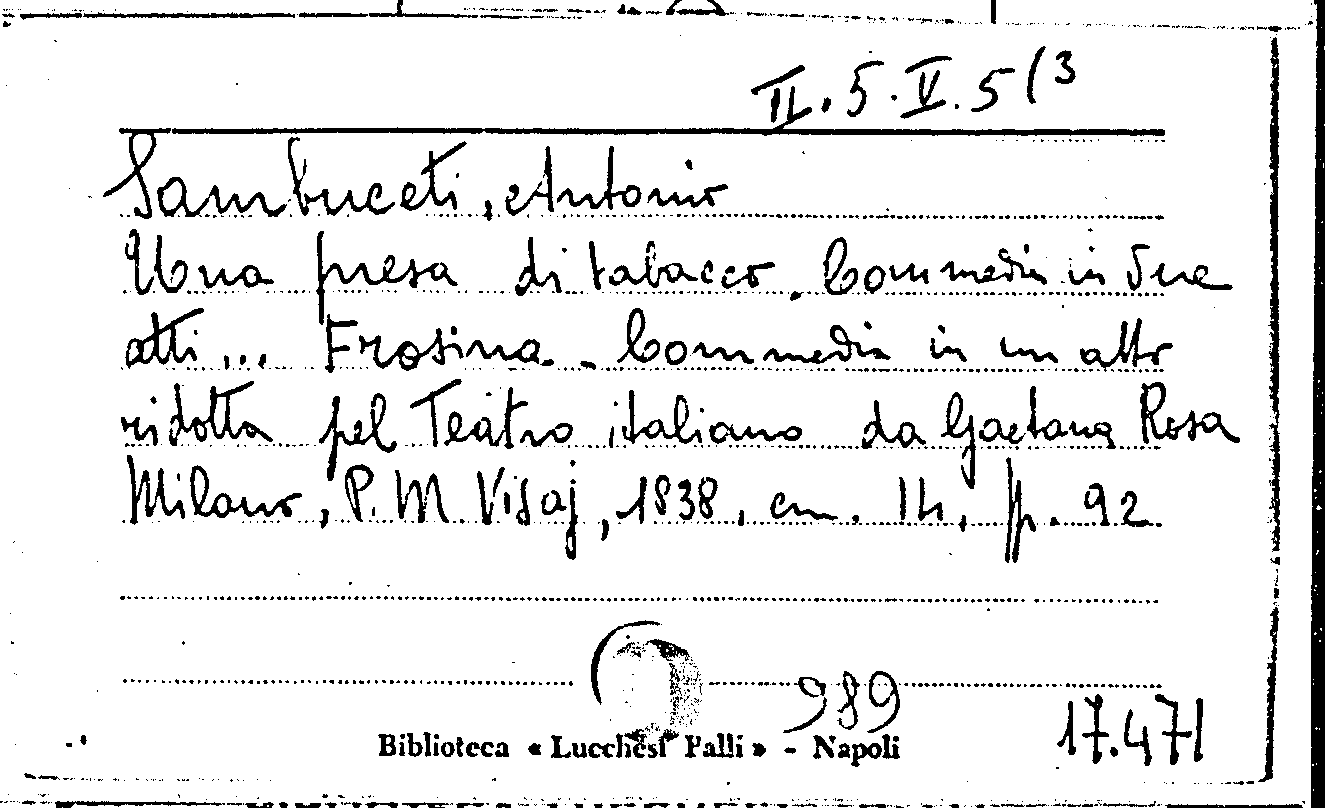 II.5.V.5(3
Sambuceti, Antonio
Una presa di tabacco. Commedia in due
atti... Frosina - Commedia in un atto
ridotta pel Teatro italiano da Gaetana Rosa
Milano, P. M. Visaj, 1838, cm. 14, p. 92
989
17.471
Biblioteca « Lucchesi Palli » - Napoli